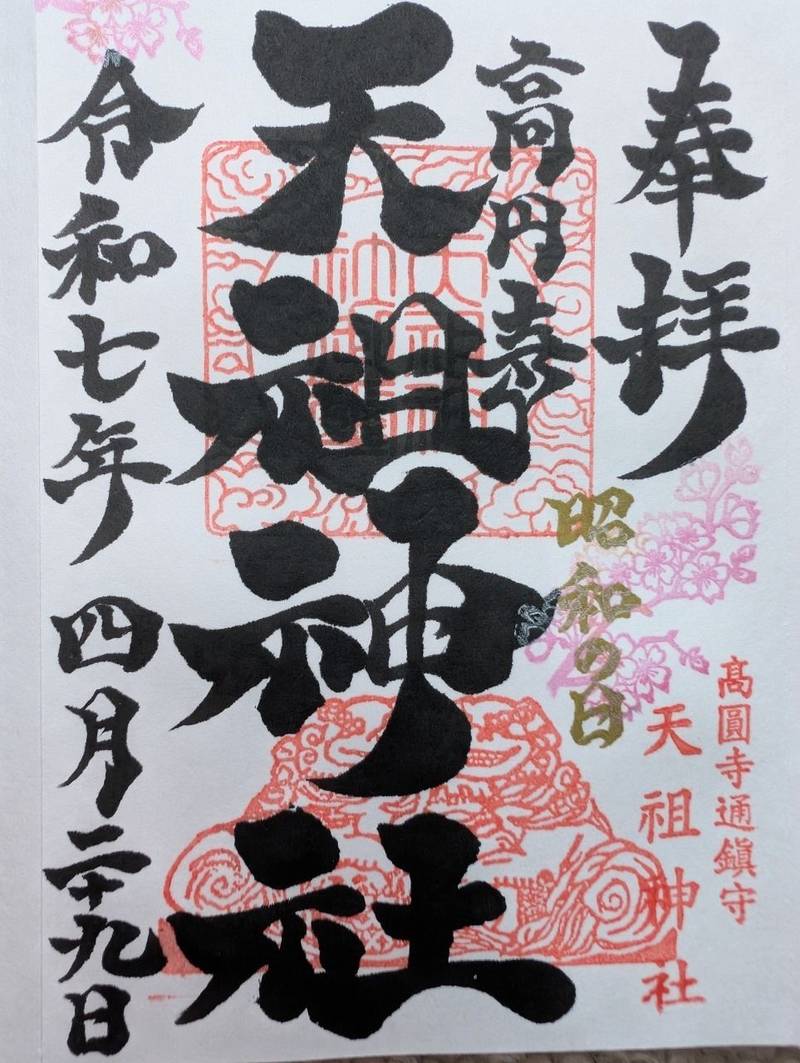 奉拝
高円寺
天祖神社
昭和の日
髙圓寺通鎮守
天祖神社
令和七年四月二十九日